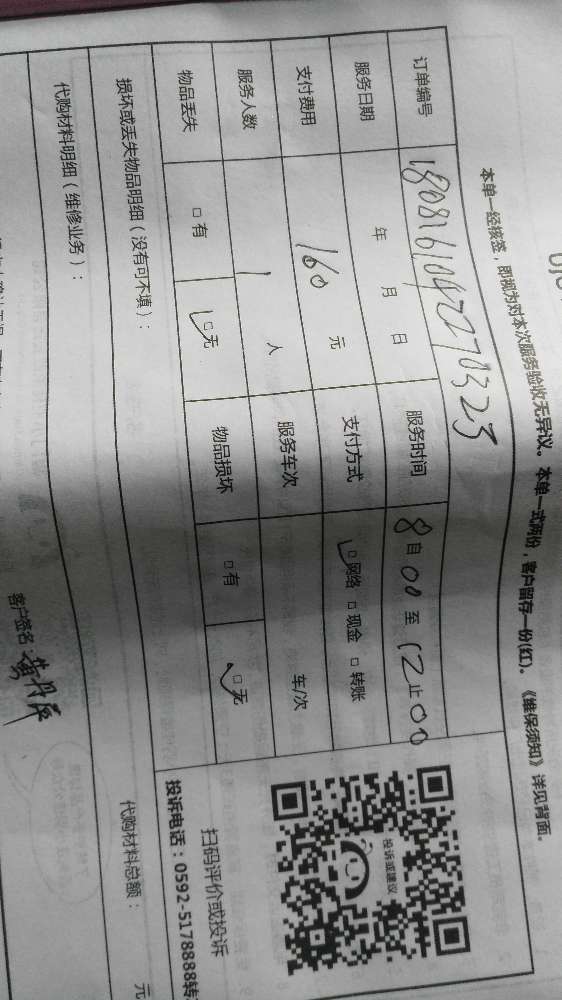 本单一经核签，即视为对本次服务验收无异议。本单一式两份，客户留存一份(红)。《维保须知》详见背面。
订单编号 1808161042270323
服务日期 年 月 日 服务时间 8自00至12止00
支付费用 160 元 支付方式 □网络 □现金 □转账
服务人数 1 人 服务车次 车/次
物品丢失 □有 □无 物品损坏 □有 □无
损坏或丢失物品明细（没有可不填）：
代购材料明细（维修业务）：
代购材料总额： 元
投诉或建议
扫码评价或投诉
投诉电话：0592-5178888转
客户签名：黄丹萍